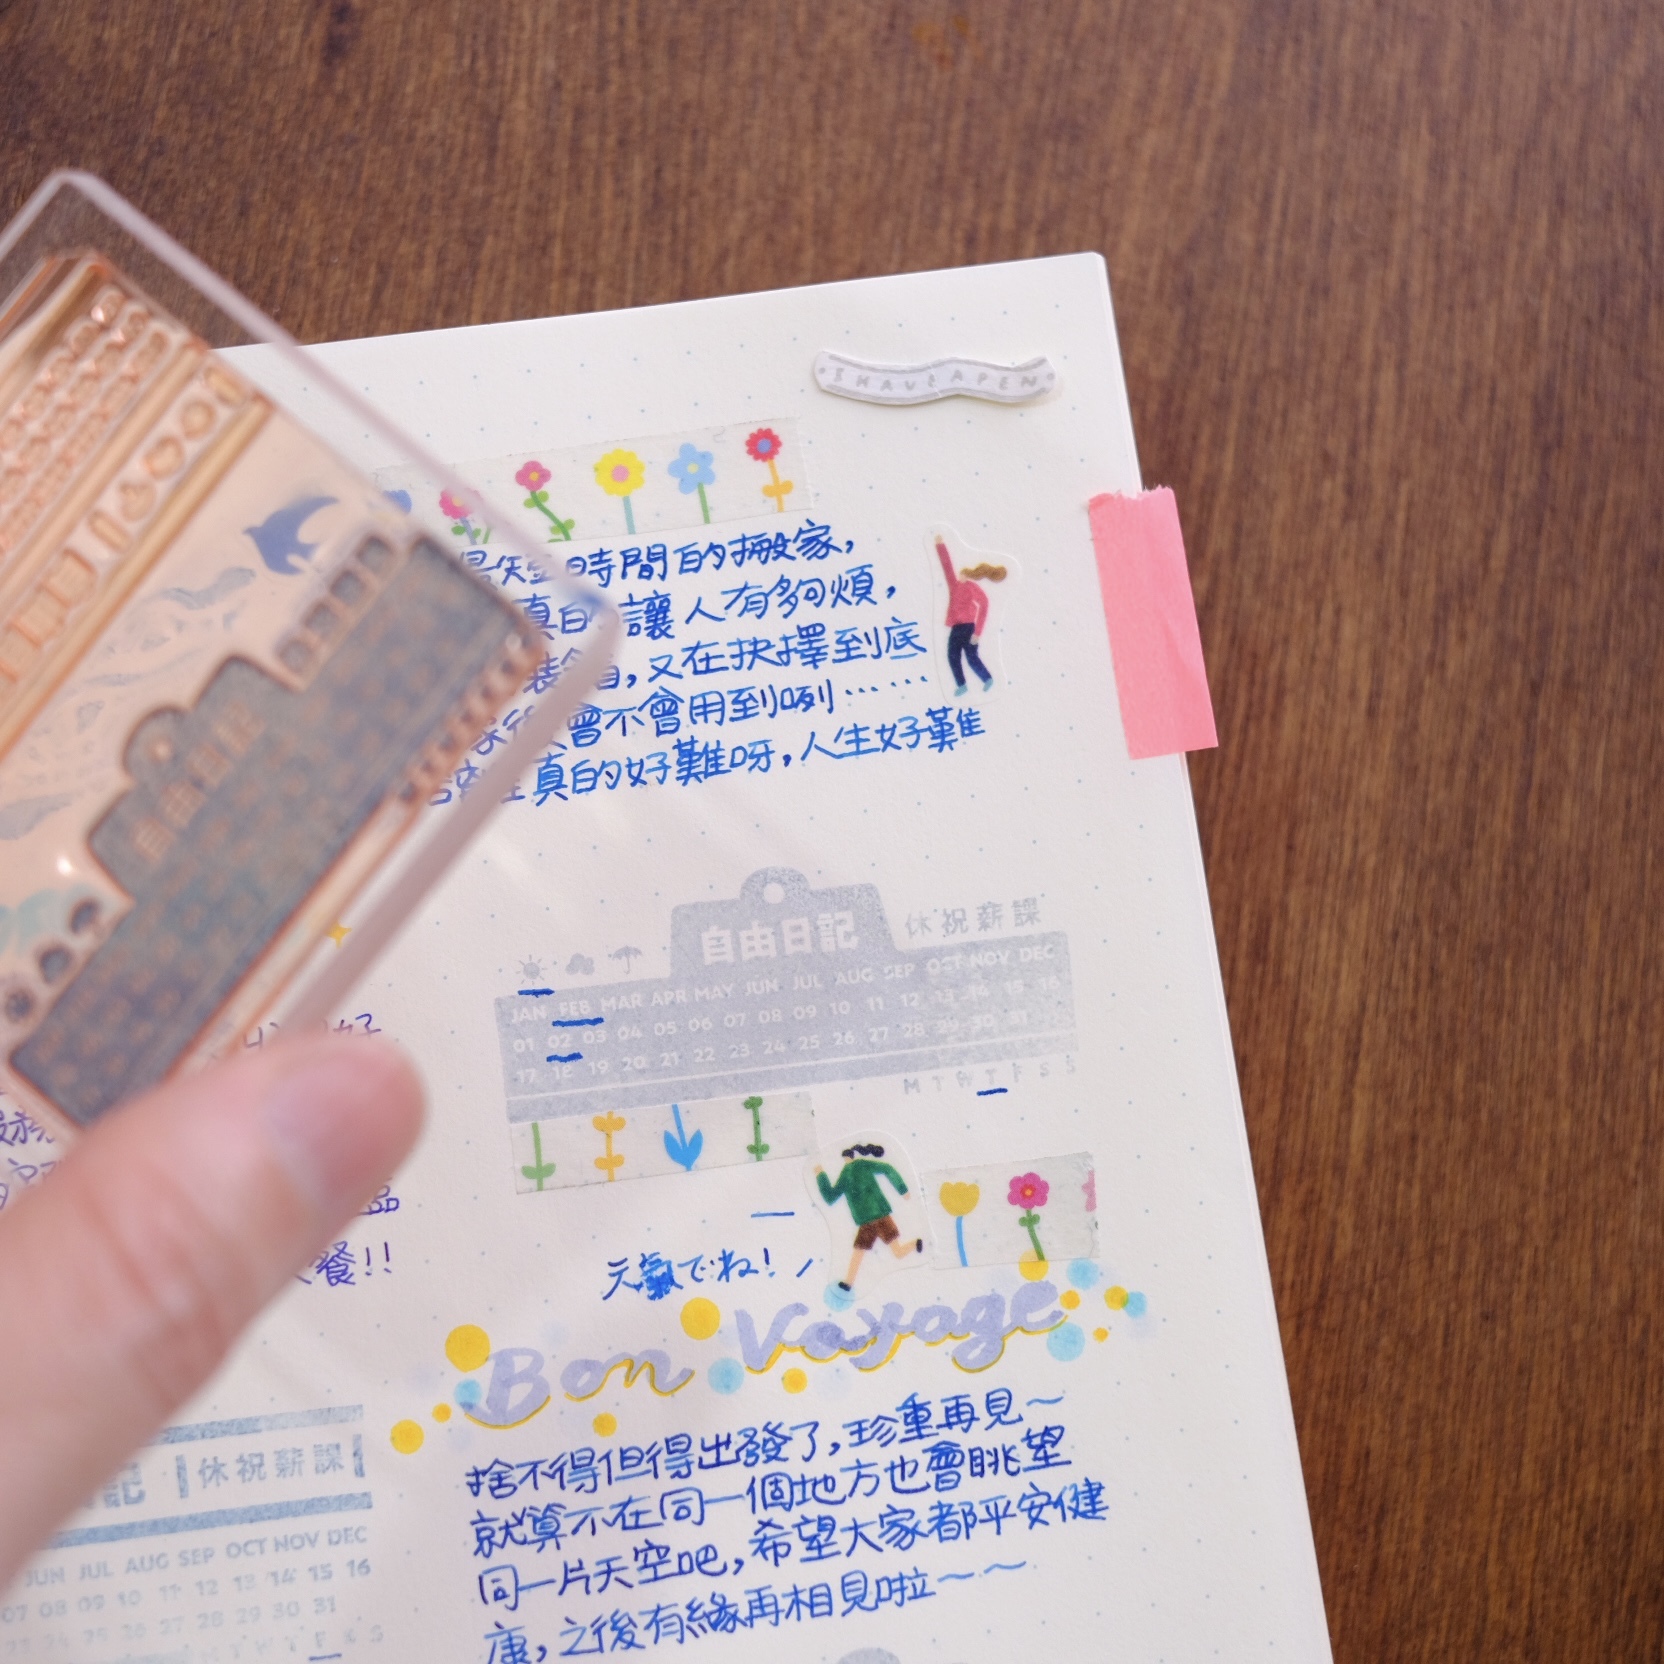 I HAVE A PEN
時間的搬家,
真的 讓人有夠煩,
裝箱,又在抉擇到底
會不會用到咧……
真的好難呀,人生好難
自由日記 休祝薪課
JAN FEB MAR APR MAY JUN JUL AUG SEP OCT NOV DEC
01 02 03 04 05 06 07 08 09 10 11 12 13 14 15 16
17 18 19 20 21 22 23 24 25 26 27 28 29 30 31
M T W T F S S
元氣でね!
Bon Voyage
捨不得但得出發了,珍重再見~
就算不在同一個地方也會眺望
同一片天空吧,希望大家都平安健
康,之後有緣再相見啦~~
自由日記
好
餐!!
記 休祝薪課
JUN JUL AUG SEP OCT NOV DEC
07 08 09 10 11 12 13 14 15 16
23 24 25 26 27 28 29 30 31
M T W T F S S